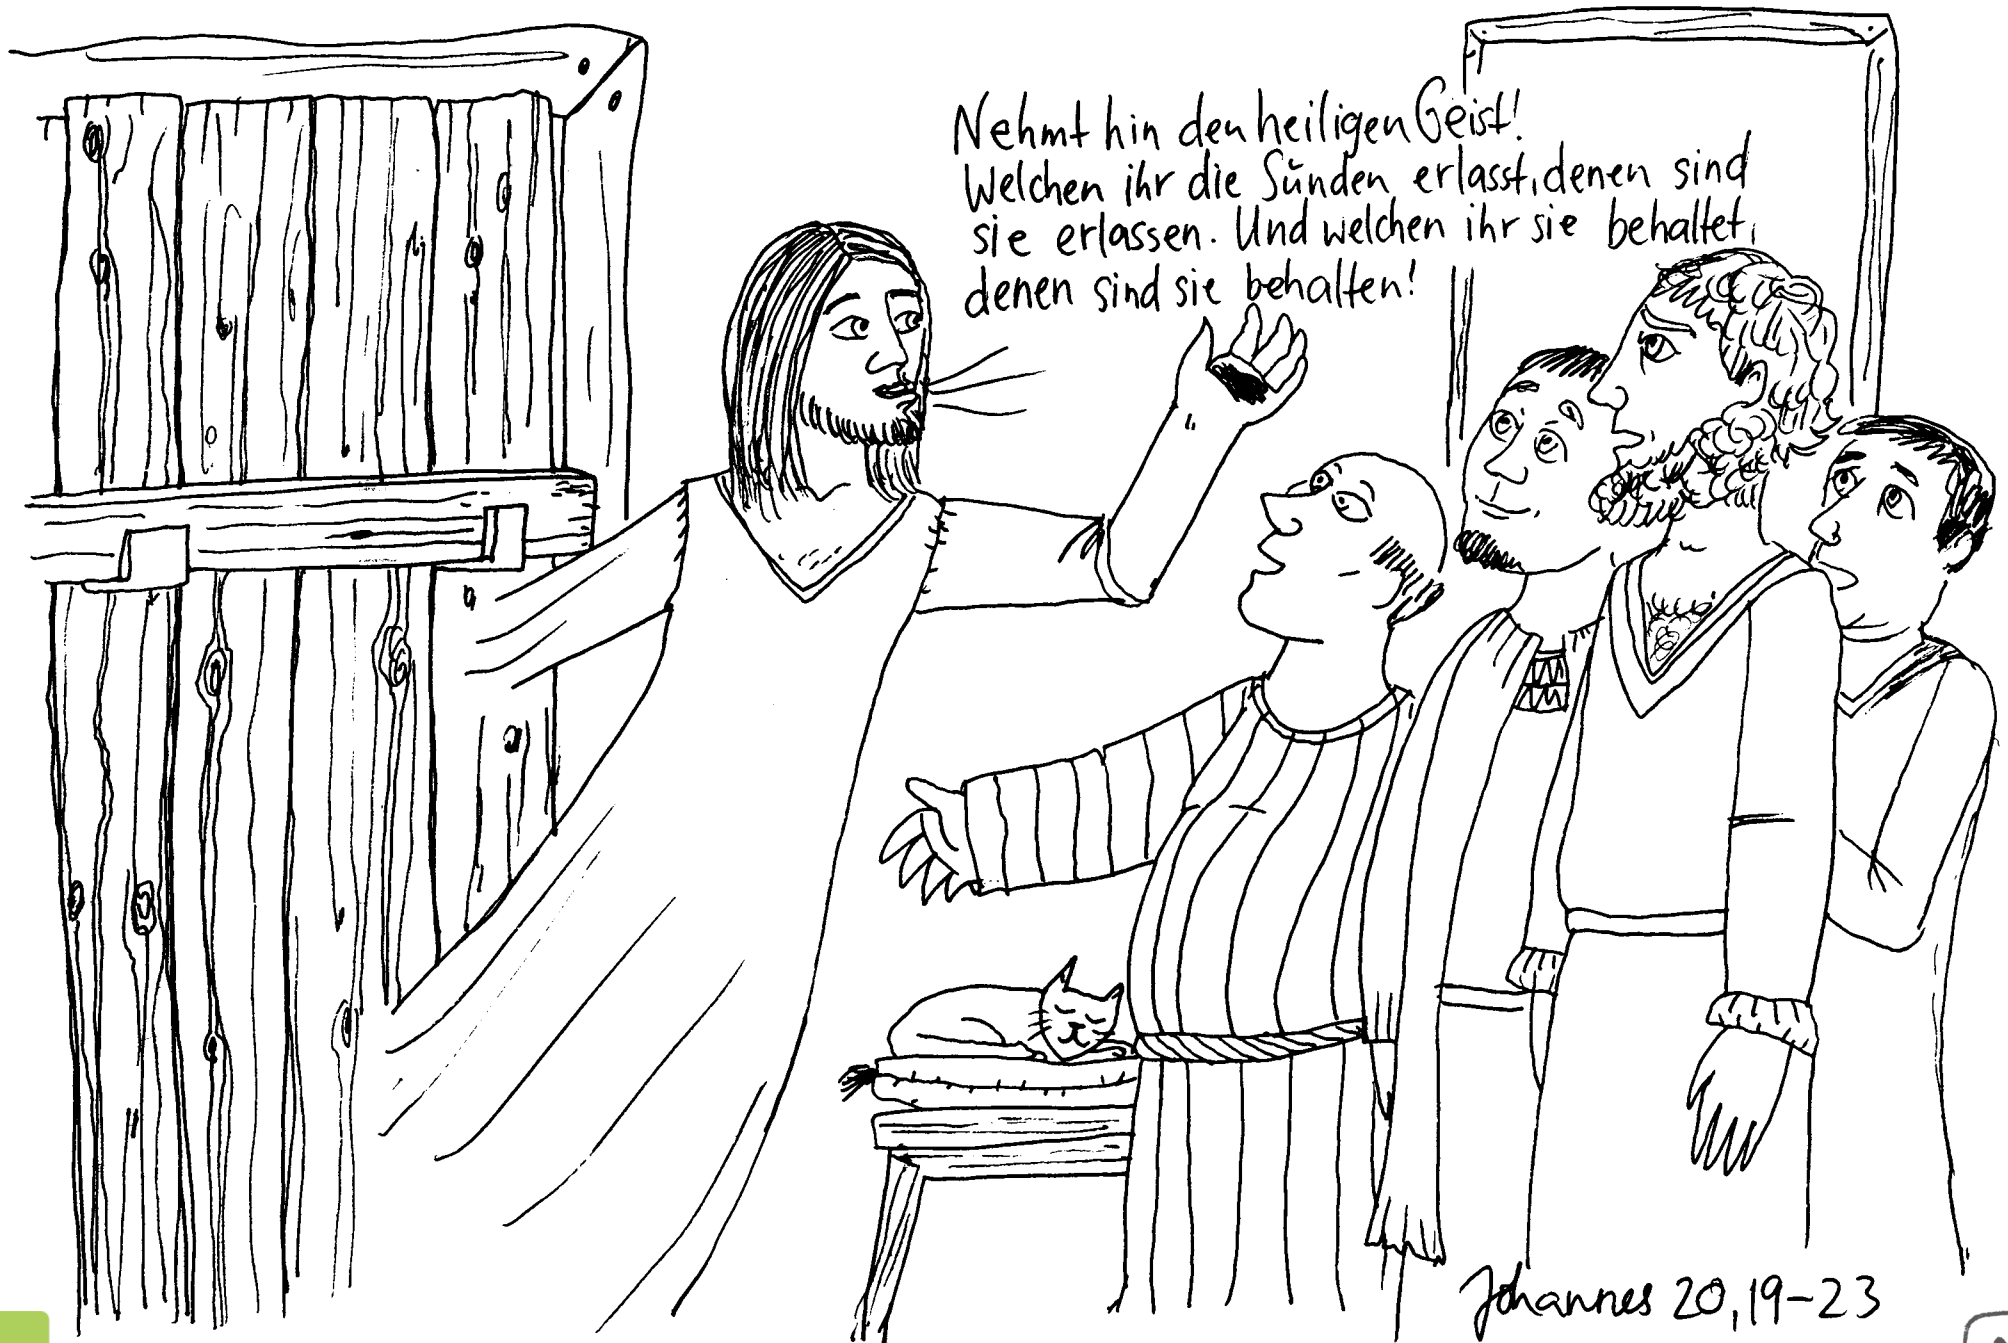 Nehmt hin den heiligen Geist!
Welchen ihr die Sünden erlasst, denen sind
sie erlassen. Und welchen ihr sie behaltet,
denen sind sie behalten!
Johannes 20,19-23